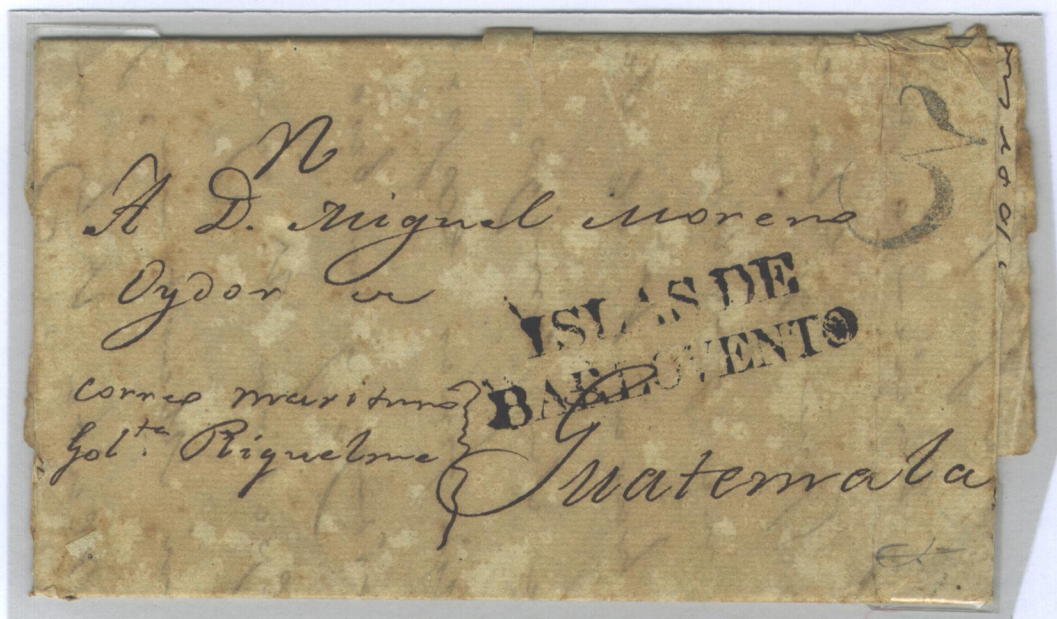 N
A D. Miguel Moreno
Oydor
ISLAS DE
BARLOVENTO
correo maritimo
Gol.ta Riquelme
Guatemala